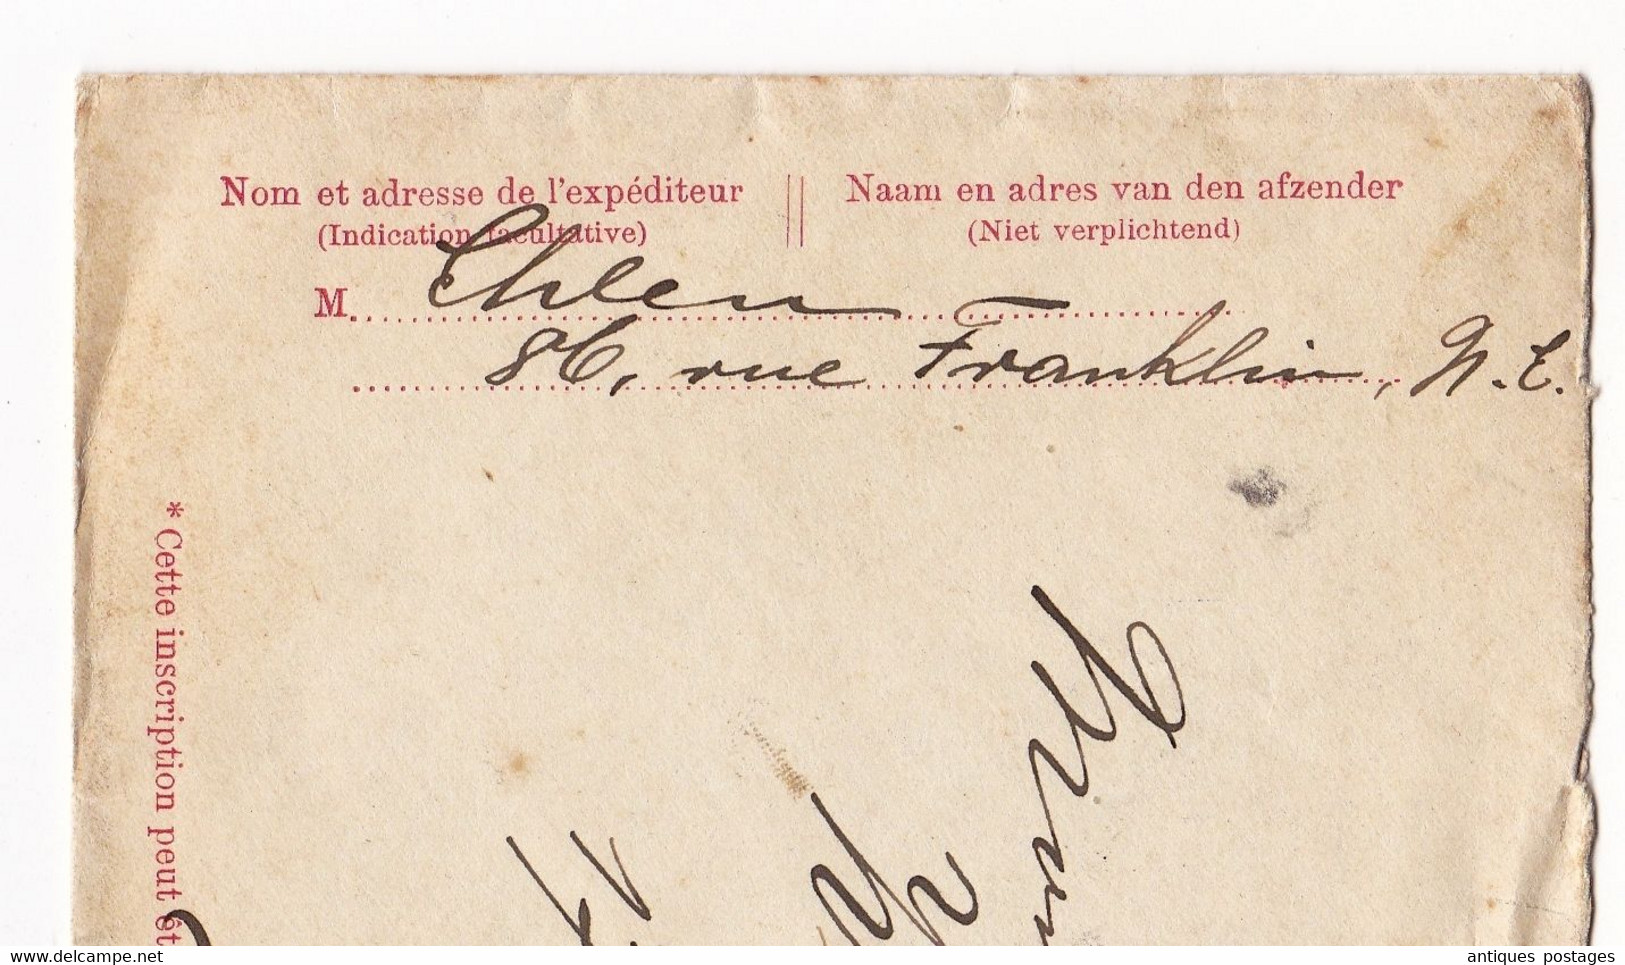 Nom et adresse de l'expéditeur
(Indication facultative)
Naam en adres van den afzender
(Niet verplichtend)
M. Ehlen
86, rue Franklin, N. E.
* Cette inscription peut êt
delcampe.net
antiques postages